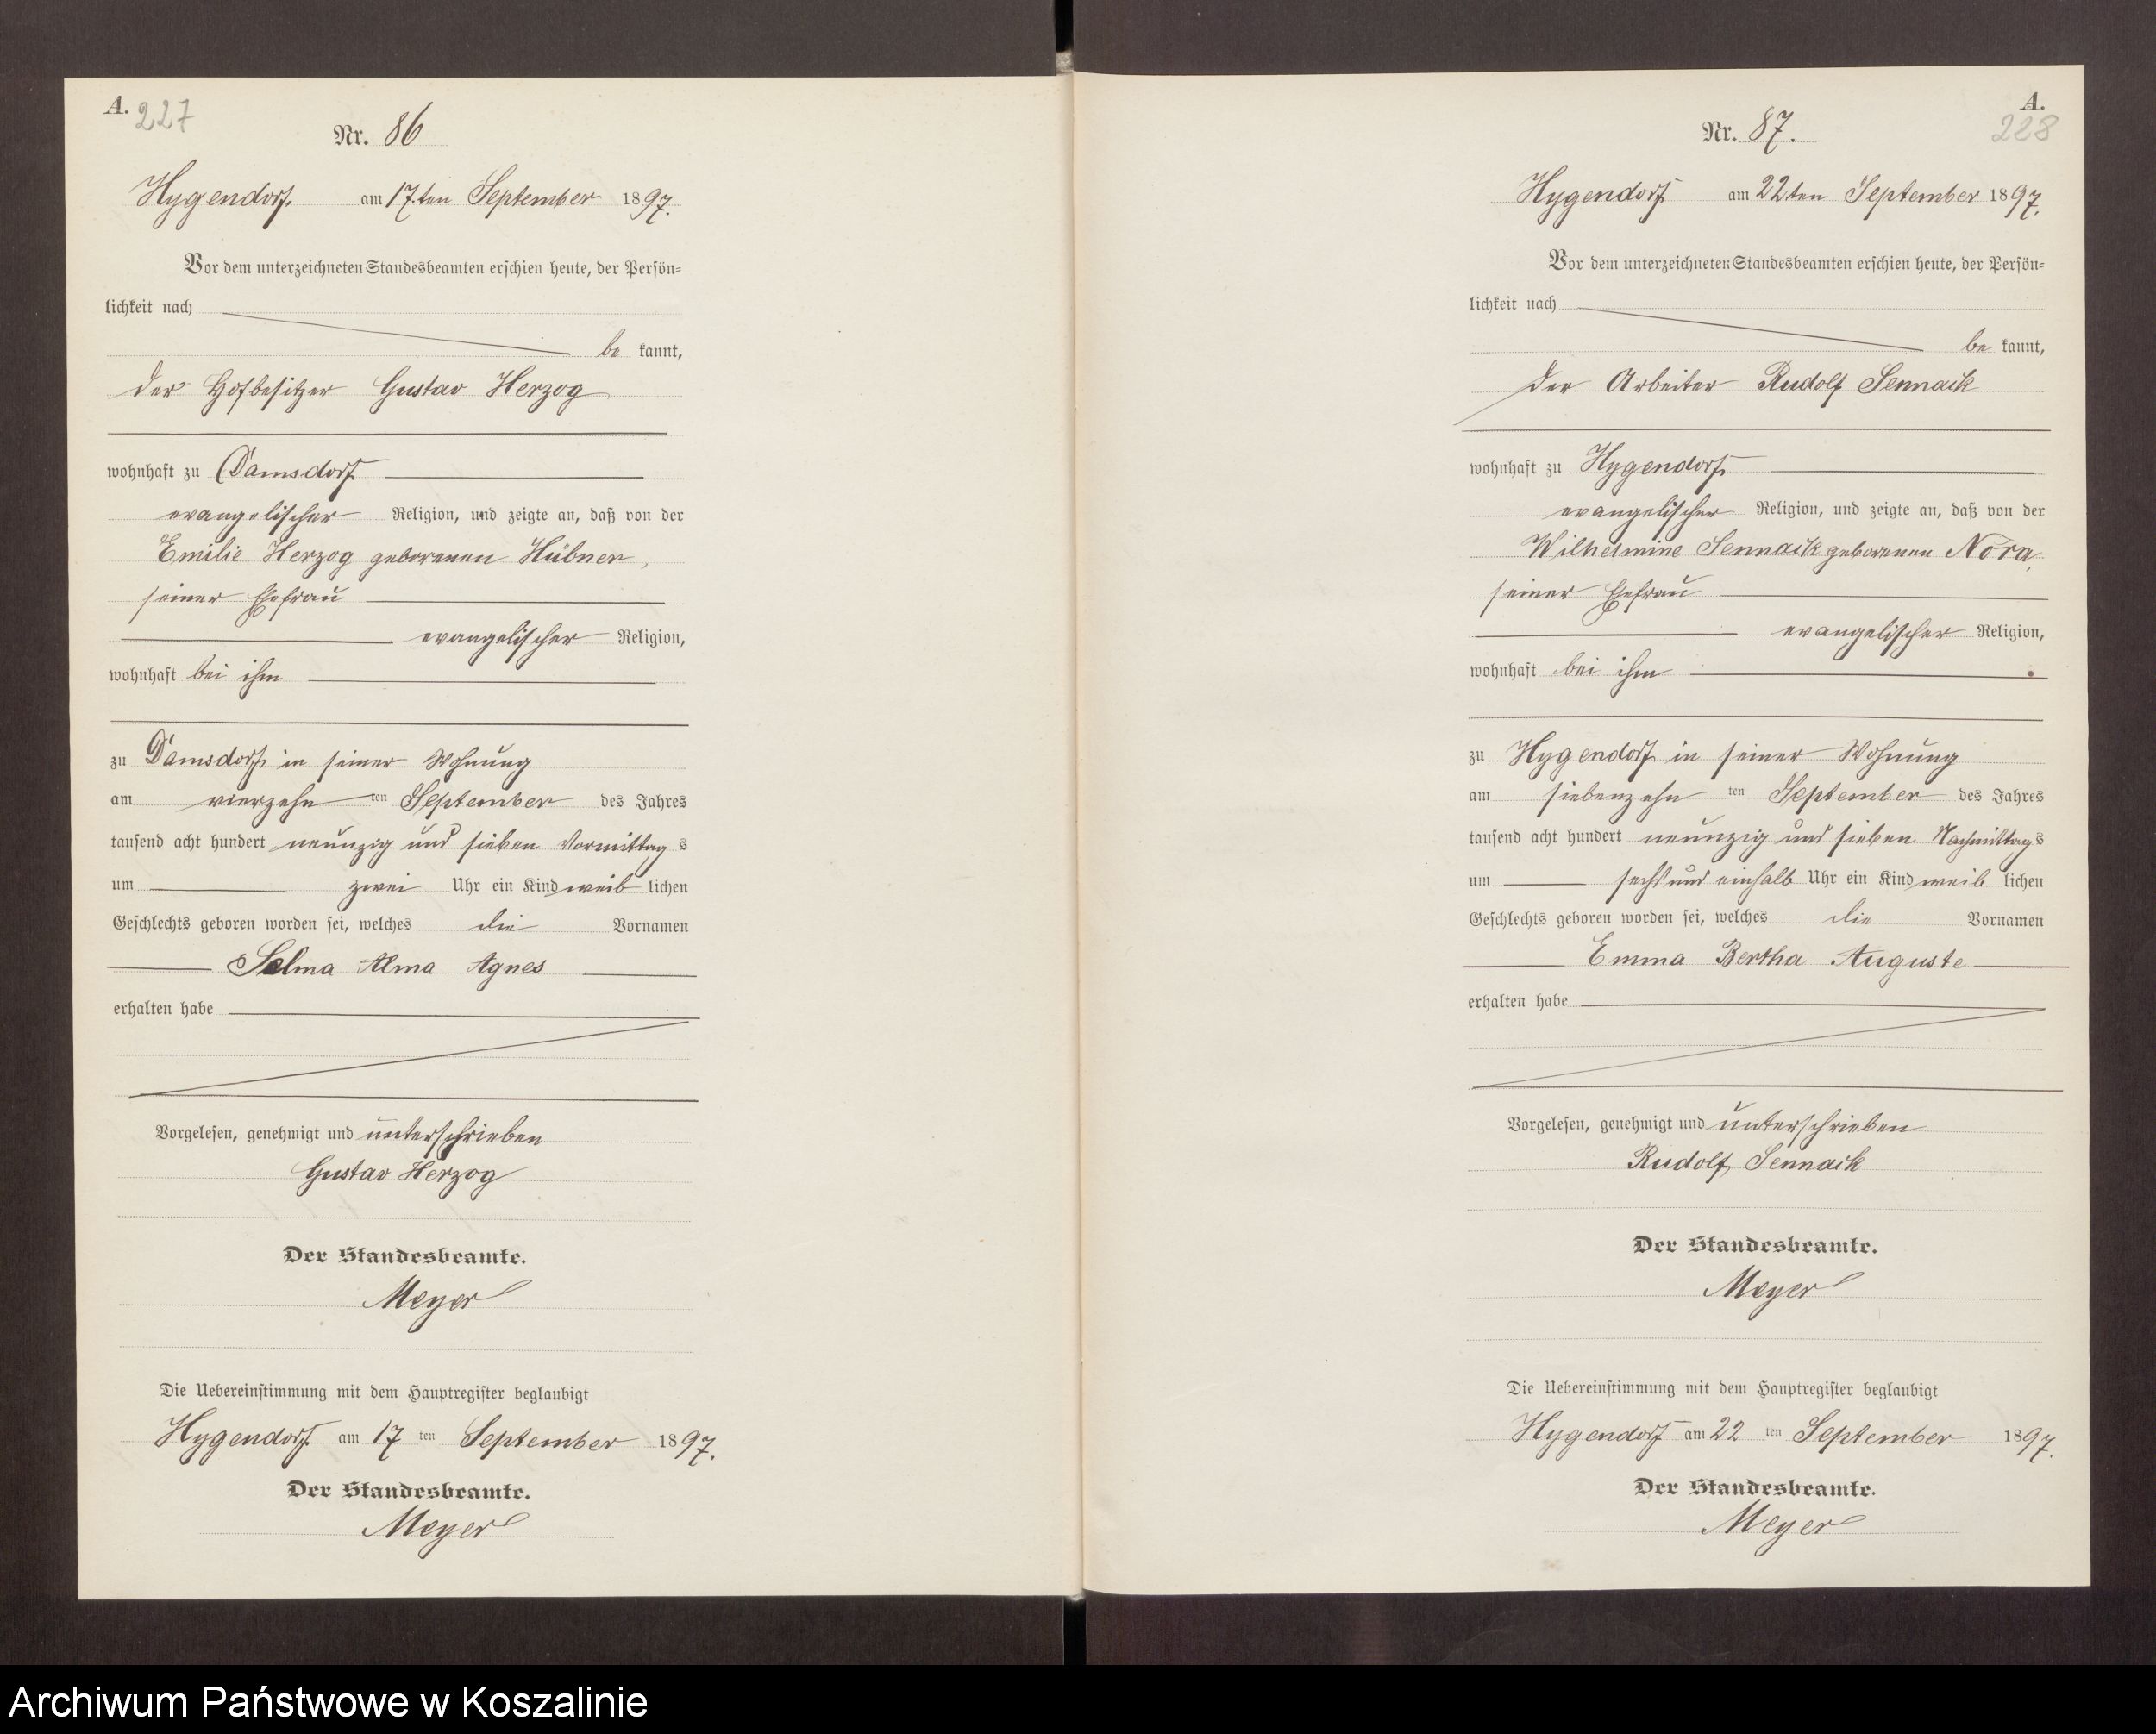 A. 227
Nr. 86
Hygendorf. am 17.ten September 1897.
Vor dem unterzeichneten Standesbeamten erschien heute, der Persön=
lichkeit nach
be kannt,
der Hofbesitzer Gustav Herzog
wohnhaft zu Damsdorf
evangelischer Religion, und zeigte an, daß von der
Emilie Herzog geborenen Hübner,
seiner Ehefrau
evangelischer Religion,
wohnhaft bei ihm
zu Damsdorf in seiner Wohnung
am vierzehn ten September des Jahres
tausend acht hundert neunzig und sieben Vormittag s
um zwei Uhr ein Kind weib lichen
Geschlechts geboren worden sei, welches die Vornamen
Selma Alma Agnes
erhalten habe
Vorgelesen, genehmigt und unterschrieben
Gustav Herzog
Der Standesbeamte.
Meyer
Die Uebereinstimmung mit dem Hauptregister beglaubigt
Hygendorf am 17 ten September 1897.
Der Standesbeamte.
Meyer
A.
228
Nr. 87.
Hygendorf am 22ten September 1897.
Vor dem unterzeichneten Standesbeamten erschien heute, der Persön=
lichkeit nach
be kannt,
der Arbeiter Rudolf Sennack
wohnhaft zu Hygendorf
evangelischer Religion, und zeigte an, daß von der
Wilhelmine Sennack geborenen Nora,
seiner Ehefrau
evangelischer Religion,
wohnhaft bei ihm
zu Hygendorf in seiner Wohnung
am siebenzehn ten September des Jahres
tausend acht hundert neunzig und sieben Nachmittag s
um sechs und einhalb Uhr ein Kind weib lichen
Geschlechts geboren worden sei, welches die Vornamen
Emma Bertha Auguste
erhalten habe
Vorgelesen, genehmigt und unterschrieben
Rudolf Sennack
Der Standesbeamte.
Meyer
Die Uebereinstimmung mit dem Hauptregister beglaubigt
Hygendorf am 22 ten September 1897.
Der Standesbeamte.
Meyer
Archiwum Państwowe w Koszalinie